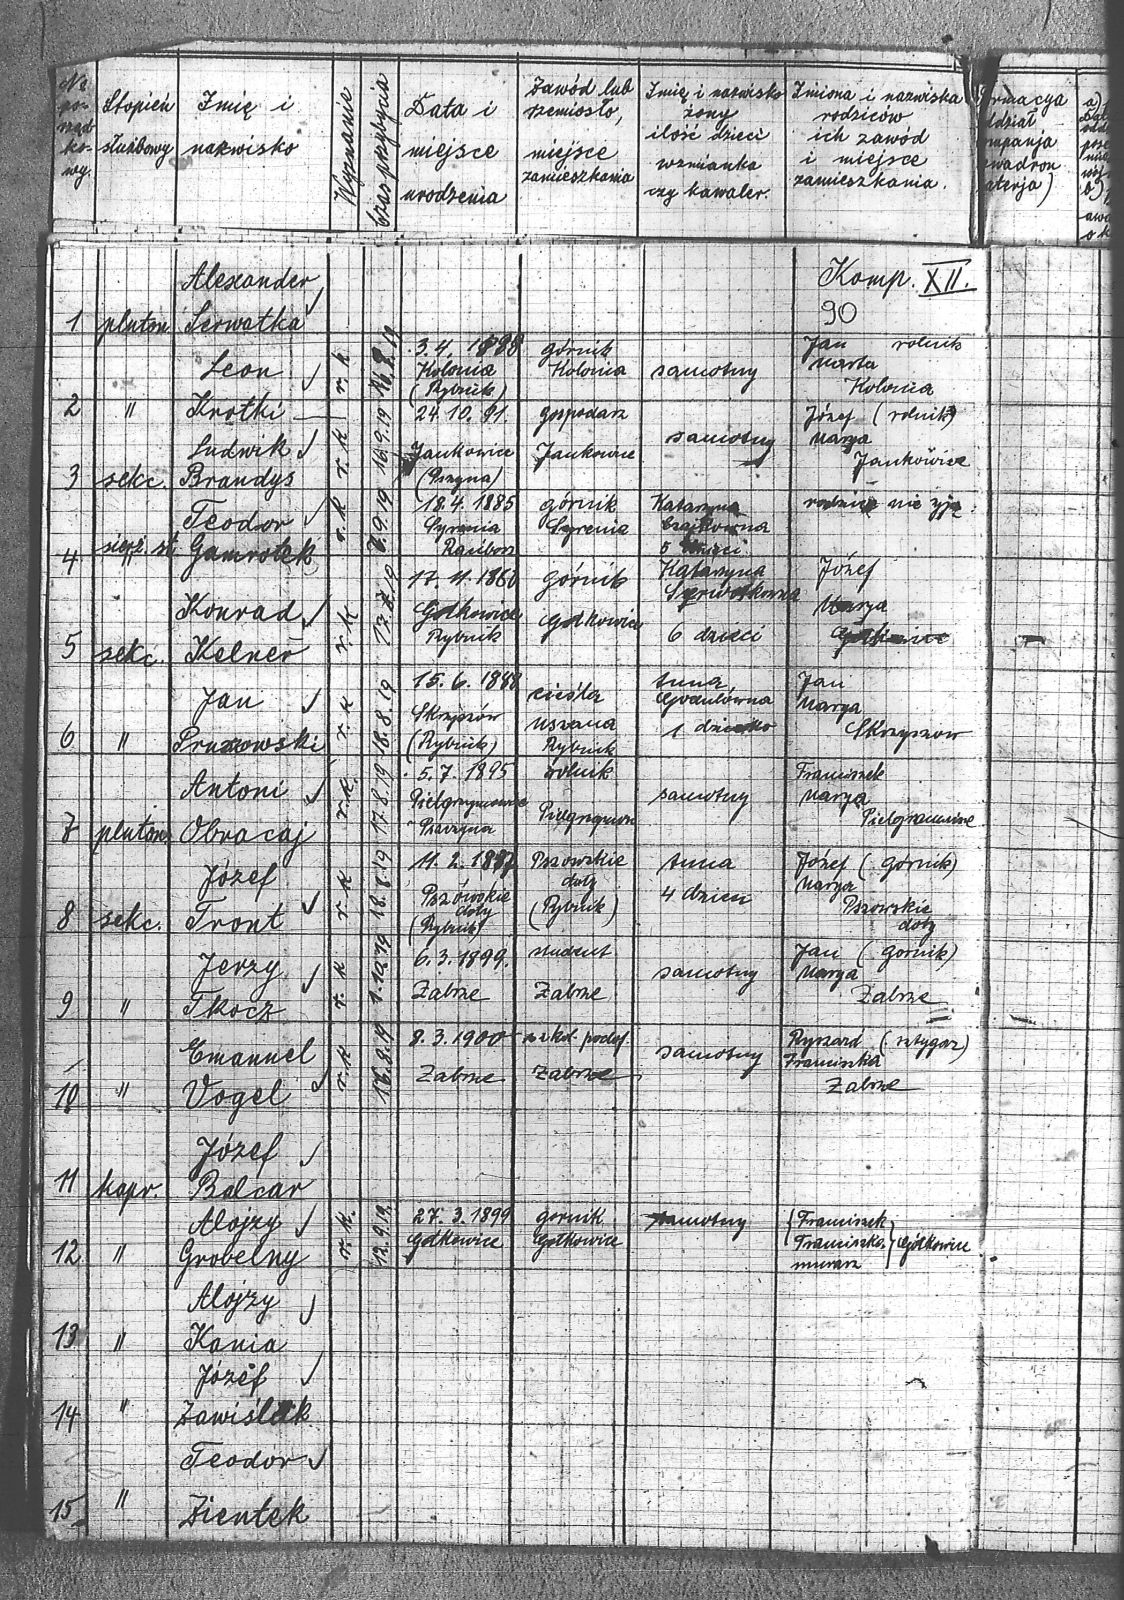 Nr porządkowy.
Stopień służbowy
Imię i nazwisko
Wyznanie
Czas przybycia
Data i miejsce urodzenia
Zawód lub rzemiosło, miejsce zamieszkania
Imię i nazwisko żony ilość dzieci wzmianka czy kawaler.
Imiona i nazwiska rodziców ich zawód i miejsce zamieszkania.
Komp. XII.
90
1 pluton Alexander Serwatka
2 " Leon Krotki r. k 3. 4. 1898 Kolonia (Rybnik) górnik Kolonia samotny Jan rolnik Marta Kolonia
3 sekc. Ludwik Brandys r. k 16.9.19 24. 10. 91. Jankowice (Pszyna) gospodarz Jankowice samotny Józef (rolnik) Marya Jankowice
4 sierż. st. " Teodor Gamrotek r. k 8.9.19 18. 4. 1885 Syrenia Racibor górnik Syrenia Katarzyna 5 dzieci rodzice nie żyją.
5 sekc. Konrad Kelner r. k Gotkowice Rybnik górnik Gotkowice Katarzyna 6 dzieci Józef Marya
6 " Jan Pruszowski r. k 18.8.19 15. 6. 1888 Skrzyszów (Rybnik) cieśla Rybnik Anna Godulówna 1 dziecko Jan Marya Skrzyszow
7 pluton. Antoni Obracaj r. k. 17.8.19 5. 7. 1895 Pielgrzymowice Pszczyna rolnik samotny Franciszek Marya
8 sekc. Józef Front r. k 18.8.19 11. 2. 1887 Pszowskie doły (Rybnik) Pszowskie doły (Rybnik) Anna 4 dzieci Józef (górnik) Marya Pszowskie doły
9 " Jerzy Tkocz r. k 1.10.19 6. 3. 1899. Zabrze student Zabrze samotny Jan (gornik) Marya Zabrze
10 " Emanuel Vogel r. k 16.8.19 8. 3. 1900 Zabrze szkoł. podof. Zabrze samotny Ryszard (sztygar) Franciszka Zabrze
11 kapr. Józef Balcar
12 " Alojzy Grobelny r. k. 12.9.19 27. 3. 1899 Gotkowice gornik Gotkowice samotny Franciszek Franciszka murarz Gotkowice
13 " Alojzy Kania
14 " Józef Zawiślak
15 " Teodor Zientek